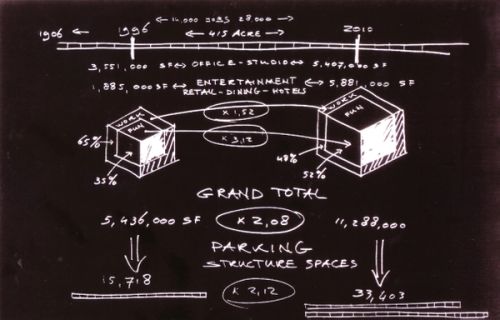 ← 14,000 JOBS 28,000 →
1906 ← 1996 ← 415 ACRE → 2010
3,551,000 SF ↔ OFFICE-STUDIO ↔ 5,407,000 SF
1,885,000 SF ↔ ENTERTAINMENT ↔ 5,881,000 SF
RETAIL-DINING-HOTELS
WORK FUN
X 1,52
WORK FUN
65%
X 3,12
35%
48%
52%
GRAND TOTAL
5,436,000 SF X 2,08 11,288,000
PARKING
STRUCTURE SPACES
15,718 X 2,12 33,403